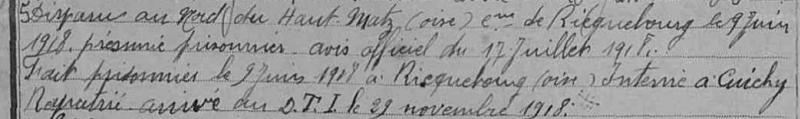 Disparu au Nord du Haut-Matz (oise) cne de Ricquebourg le 9 Juin
1918. présumé prisonnier avis officiel du 17 Juillet 1918.
Fait prisonnier le 9 Juin 1918 à Ricquebourg (oise) Interné à Cuichy
Rapatrié arrivé au D.T.I. le 29 novembre 1918.